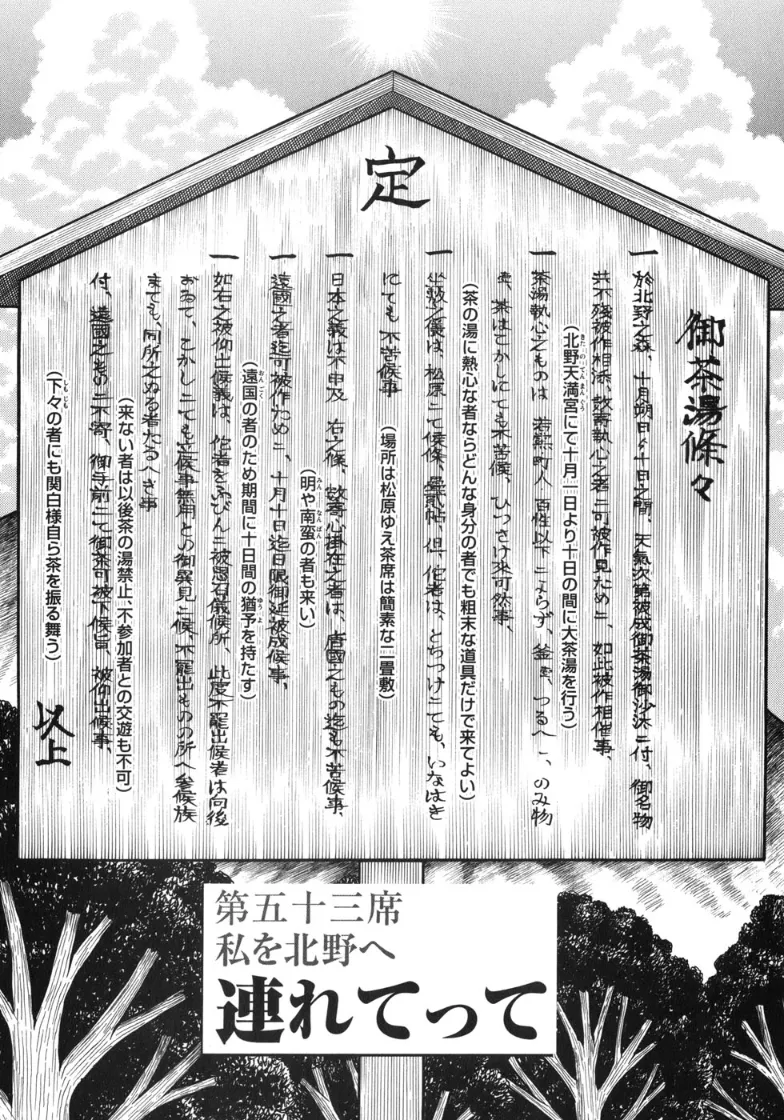 定
御茶湯條々
一 於北野之森、十月朔日より十日之間、天氣次第被成御茶湯御沙汰ニ付、御名物
共不残被作相添、数寄執心之者ニ可被作見ためニ、如此被作相催事、
(北野天満宮にて十月一日より十日の間に大茶湯を行う)
一 茶湯執心之ものは、若黨町人百性以下ニよらず、釜壱、つるへ一、のみ物
壱、茶はこかしにても不苦候、ひつさけ来可然事、
(茶の湯に熱心な者ならどんな身分の者でも粗末な道具だけで来てよい)
一 坐敷之儀は、松原ニて候條、疊貳帖、但佗者は、とちつけニても、いなはき
にても不苦候事
(場所は松原ゆえ茶席は簡素な二畳敷)
一 日本之義は不申及、右之條、数寄心掛在之者は、唐國之もの迄も不苦候事、
(明や南蛮の者も来い)
一 遠國之者迄可被作ためニ、十月十日迄日限御延被成候事、
(遠国の者のため期間に十日間の猶予を持たす)
一 如右之被仰出候義は、佗者をふびんニ被思召儀候所、此度不罷出候者は向後
おゐて、こかしニても立候事無用との御異見ニ候、不罷出ものの所へ参候族
までも、同所之ぬる者たるへき事
(来ない者は以後茶の湯禁止、不参加者との交遊も不可)
付、遠國之ものニ不寄、御手前ニて御茶可被下候旨、被仰出候事、
(下々の者にも関白様自ら茶を振る舞う)
以上
第五十三席
私を北野へ
連れてって